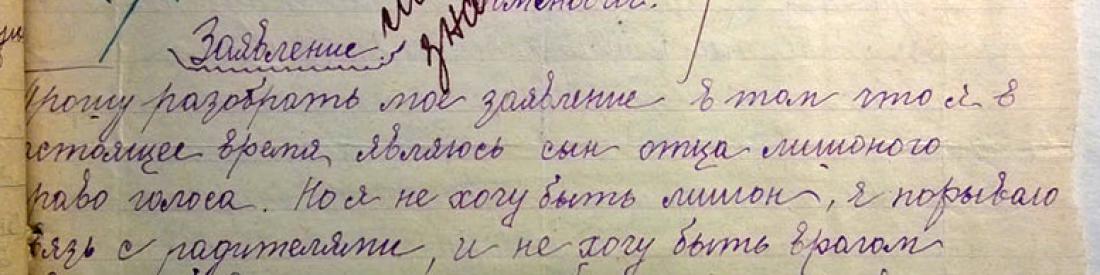 Заявление
Прошу разобрать мое заявление в том что я в
астоящее время, являюсь сын отца лишоного
право голоса. Но я не хочу быть лишон, я порываю
вязь с радителями, и не хочу быть врагом